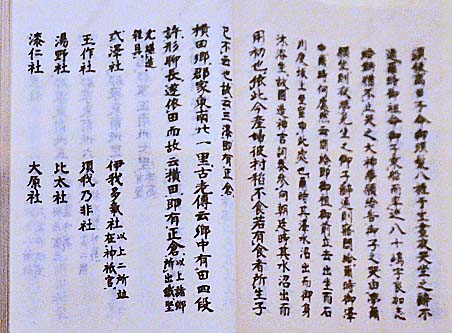 須枳高日子命御須髪八握于生晝夜哭坐之辞不
通爾時御祖命御子乗船而率巡八十嶋宇良加志
給鞆猶不止哭之大神夢願給告御子之哭由夢爾
願坐則夜夢見坐之御子辞通則寤問給爾時御澤
申爾時何處然云問給即御祖御前立去出坐而石
川度坂上至留申此處也爾時其澤水沼出而御身
沐浴坐故國造神吉事奏參向朝廷時其水沼出而
用初也依此今産婦彼村稻不食若有食者所生子
已不云也故云三澤即有正倉
横田郷郡家東南廿一里古老傳云郷中有田四段
許形聊長遂依田而故云横田即有正倉以上諸郷所出鐵堅
尤堪造雜具
弎澤社 伊我多氣社以上二所並在神祇官
玉作社 須我乃非社
湯野社 比太社
漆仁社 大原社